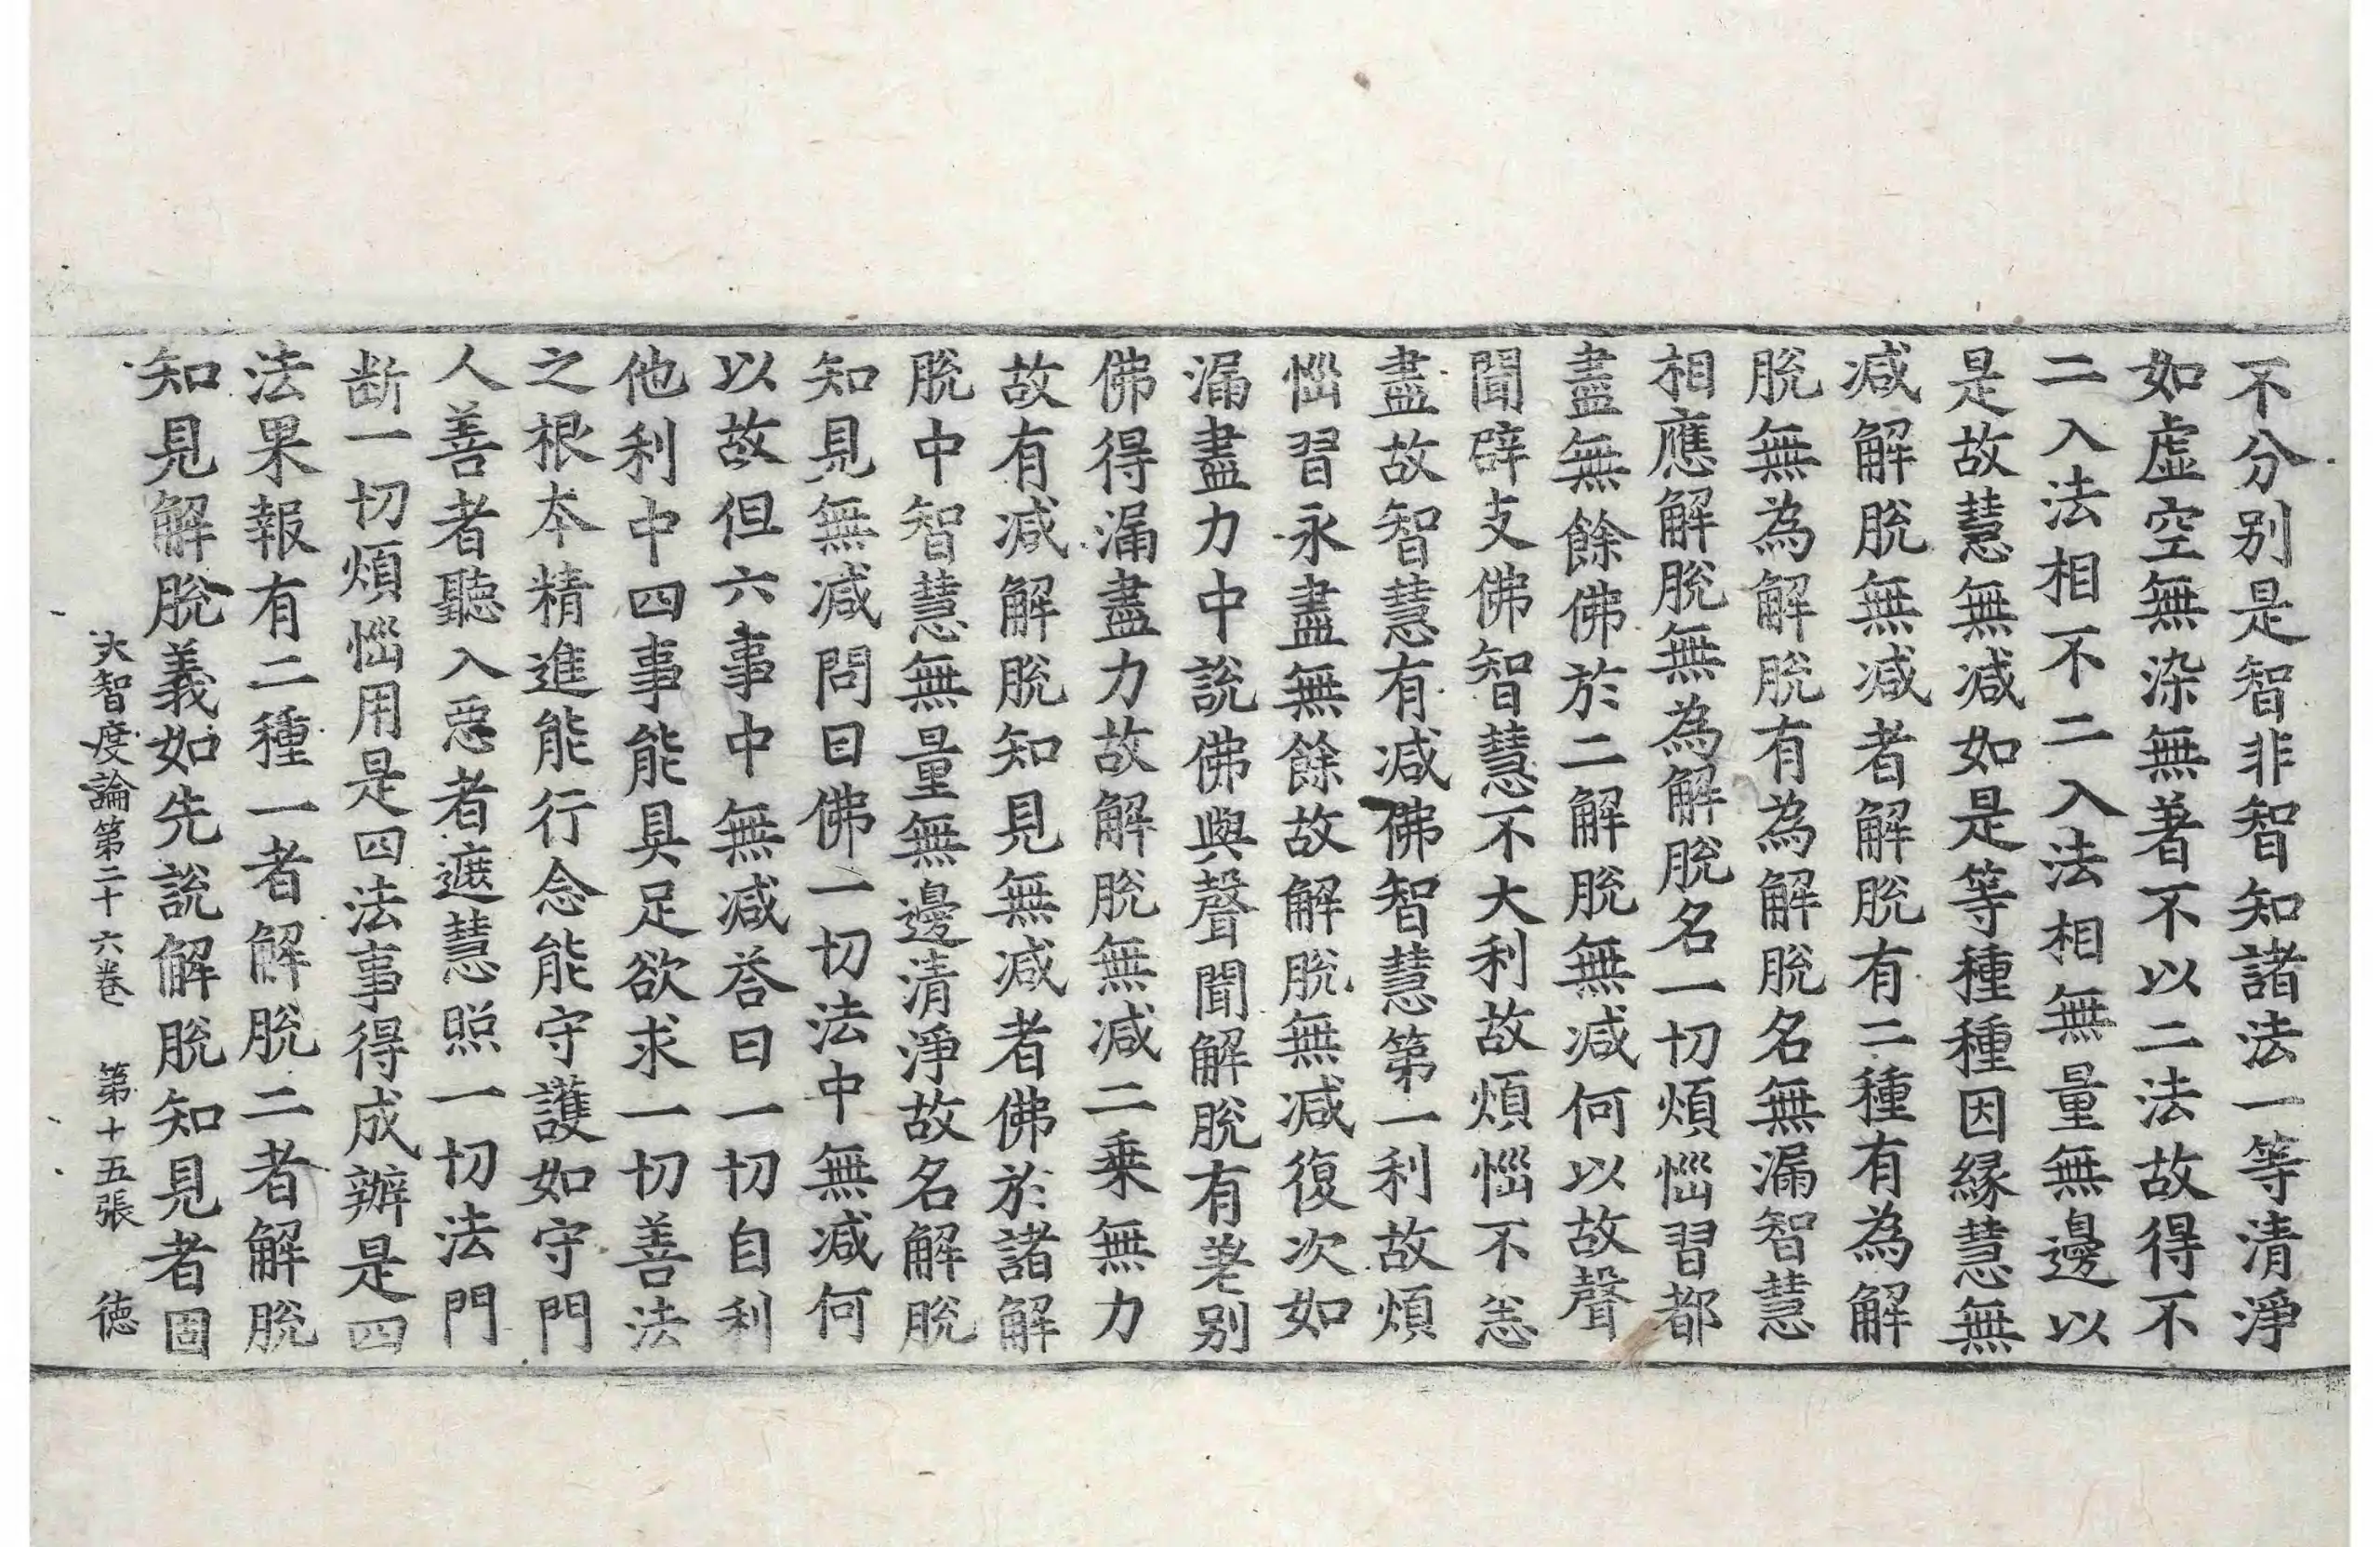 不分别是智非智知諸法一等清淨
如虛空無染無著不以二法故得不
二入法相不二入法相無量無邊以
是故慧無减如是等種種因緣慧無
减解脫無减者解脫有二種有為解
脫無為解脫有為解脫名無漏智慧
相應解脫無為解脫名一切煩惱習都
盡無餘佛於二解脫無减何以故聲
聞辟支佛智慧不大利故煩惱不㤀
盡故智慧有减佛智慧第一利故煩
惱習永盡無餘故解脫無减復次如
漏盡力中說佛與聲聞解脫有差别
佛得漏盡力故解脫無减二乗無力
故有减解脫知見無减者佛於諸解
脫中智慧無量無邊清淨故名解脫
知見無减問曰佛一切法中無减何
以故但六事中無减荅曰一切自利
他利中四事能具足欲求一切善法
之根本精進能行念能守護如守門
人善者聽入惡者遮慧照一切法門
断一切煩惱用是四法事得成辦是四
法果報有二種一者解脫二者解脫
知見解脫義如先說解脫知見者固
大智度論第二十六卷　第十五張　徳